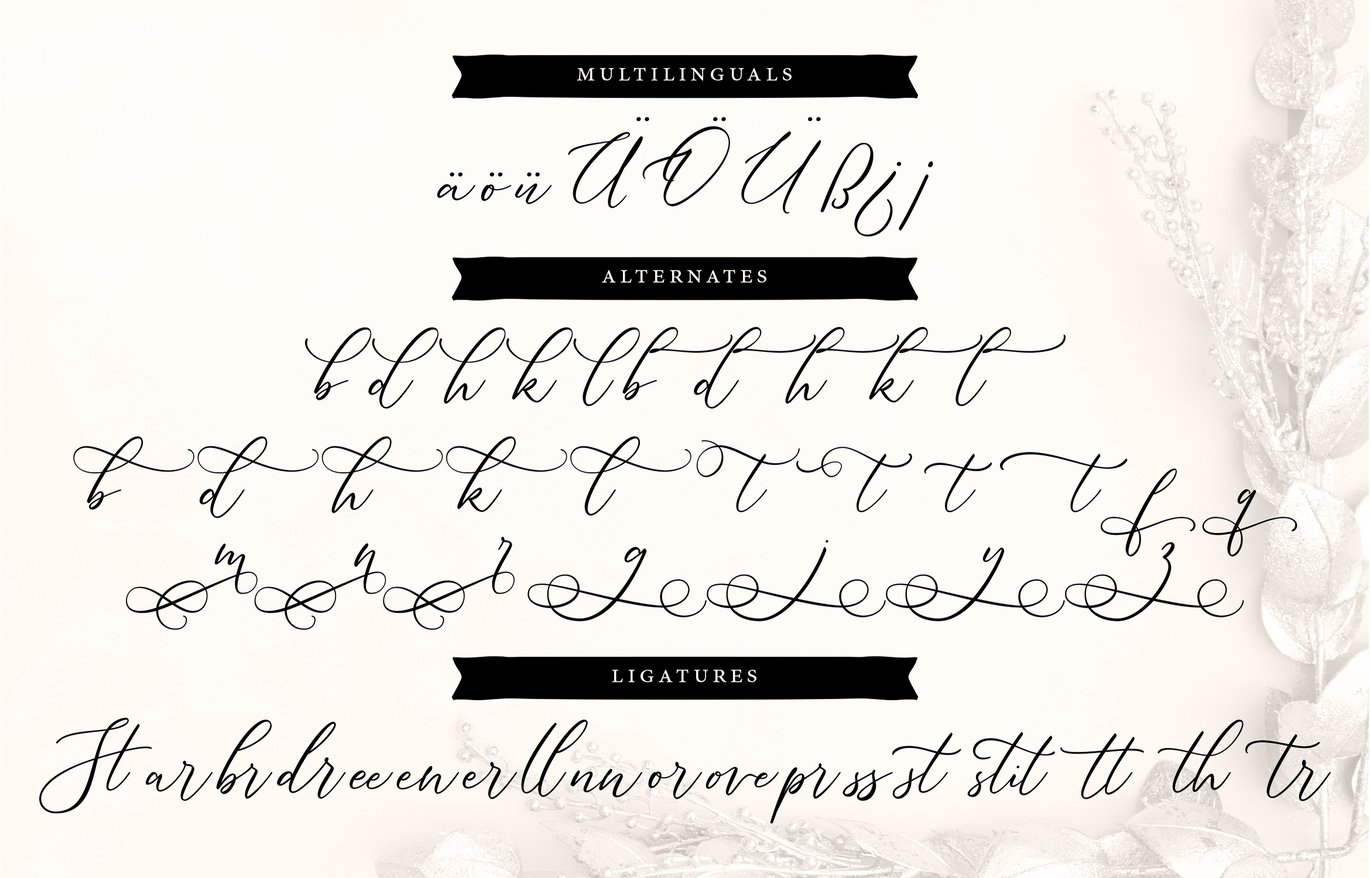 MULTILINGUALS
ä ö ü Ä Ö Ü ß ¿ ¡
ALTERNATES
b d h k l b d h k l
b d h k l t t t t f q
m n r g j y z
LIGATURES
St ar br dr ee en er ll nn or ov e pr ss st sti t tt th tr